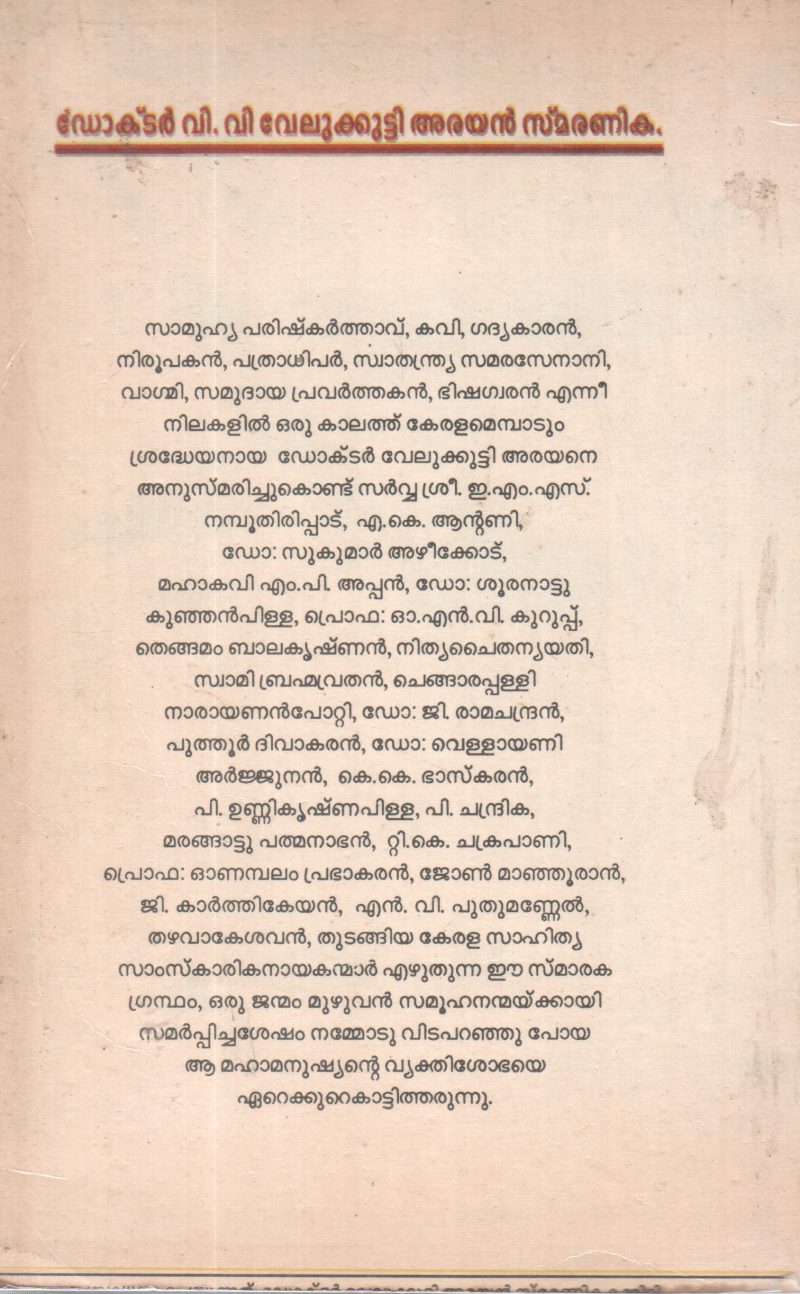 ഡോക്ടർ വി. വി വേലുക്കുട്ടി അരയൻ സ്മരണിക.
സാമുഹ്യ പരിഷ്കർത്താവ്, കവി, ഗദ്യകാരൻ,
നിരൂപകൻ, പത്രാധിപർ, സ്വാതന്ത്ര്യ സമരസേനാനി,
വാഗ്മി, സമുദായ പ്രവർത്തകൻ, ഭിഷഗ്വരൻ എന്നീ
നിലകളിൽ ഒരു കാലത്ത് കേരളമെമ്പാടും
ശ്രദ്ധേയനായ ഡോക്ടർ വേലുക്കുട്ടി അരയനെ
അനുസ്മരിച്ചുകൊണ്ട് സർവ്വശ്രീ. ഇ.എം.എസ്.
നമ്പൂതിരിപ്പാട്, എ.കെ. ആന്റണി,
ഡോ: സുകുമാർ അഴീക്കോട്,
മഹാകവി എം.പി. അപ്പൻ, ഡോ: ശൂരനാട്ടു
കുഞ്ഞൻപിള്ള, പ്രൊഫ: ഓ.എൻ.വി. കുറുപ്പ്,
തെങ്ങമം ബാലകൃഷ്ണൻ, നിത്യചൈതന്യയതി,
സ്വാമി ബ്രഹ്മവ്രതൻ, ചെങ്ങാരപ്പള്ളി
നാരായണൻപോറ്റി, ഡോ: ജി. രാമചന്ദ്രൻ,
പുത്തൂർ ദിവാകരൻ, ഡോ: വെള്ളായണി
അർജ്ജുനൻ, കെ.കെ. ഭാസ്കരൻ,
പി. ഉണ്ണികൃഷ്ണപിള്ള, പി. ചന്ദ്രിക,
മരങ്ങാട്ടു പത്മനാഭൻ, റ്റി.കെ. ചക്രപാണി,
പ്രൊഫ: ഓണമ്പലം പ്രഭാകരൻ, ജോൺ മാഞ്ഞൂരാൻ,
ജി. കാർത്തികേയൻ, എൻ. വി. പുതുമണ്ണേൽ,
തഴവാകേശവൻ, തുടങ്ങിയ കേരള സാഹിത്യ
സാംസ്കാരികനായകന്മാർ എഴുതുന്ന ഈ സ്മാരക
ഗ്രന്ഥം, ഒരു ജന്മം മുഴുവൻ സമൂഹനന്മയ്ക്കായി
സമർപ്പിച്ചശേഷം നമ്മോടു വിടപറഞ്ഞു പോയ
ആ മഹാമനുഷ്യന്റെ വ്യക്തിശോഭയെ
ഏറെക്കുറെകാട്ടിത്തരുന്നു.